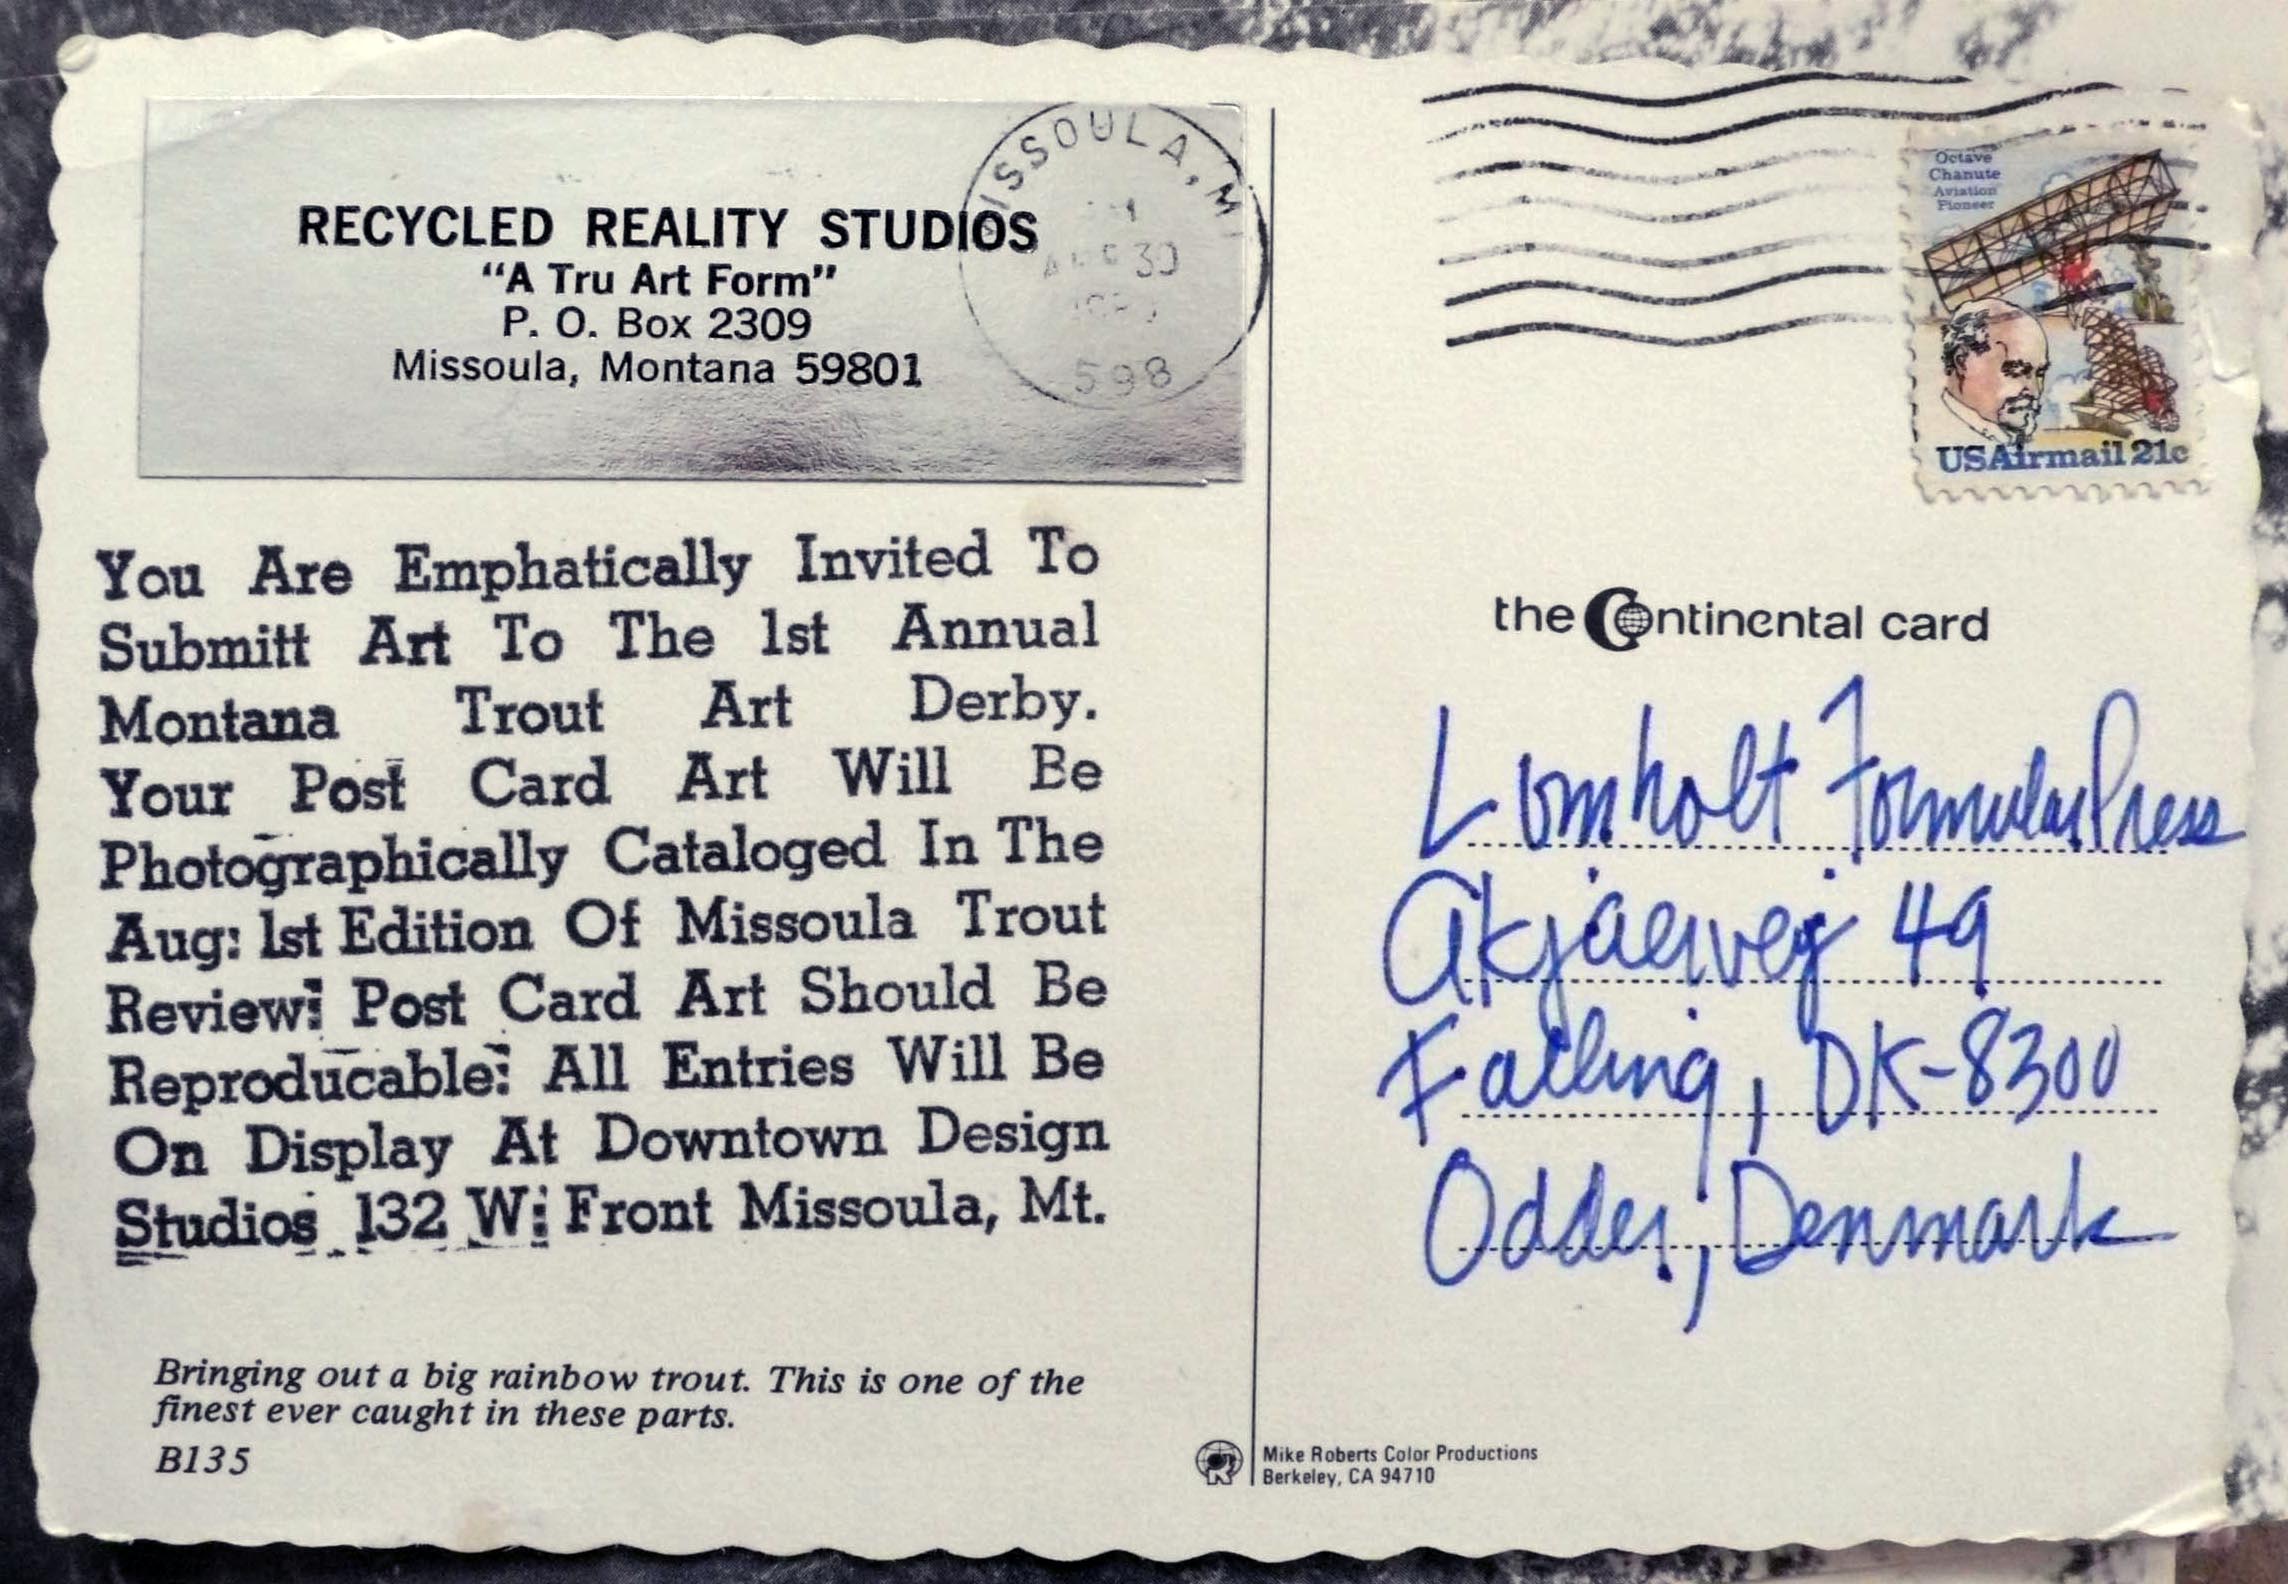 RECYCLED REALITY STUDIOS
“A Tru Art Form”
P. O. Box 2309
Missoula, Montana 59801
ISSOULA, M
30
598
Octave
Chanute
Aviation
Pioneer
USAirmail 21c
You Are Emphatically Invited To
Submitt Art To The 1st Annual
Montana Trout Art Derby.
Your Post Card Art Will Be
Photographically Cataloged In The
Aug: 1st Edition Of Missoula Trout
Review: Post Card Art Should Be
Reproducable: All Entries Will Be
On Display At Downtown Design
Studios 132 W: Front Missoula, Mt.
Bringing out a big rainbow trout. This is one of the
finest ever caught in these parts.
B135
the Continental card
Lomholt Formular Press
Falling, DK-8300
Odder, Denmark
Mike Roberts Color Productions
Berkeley, CA 94710